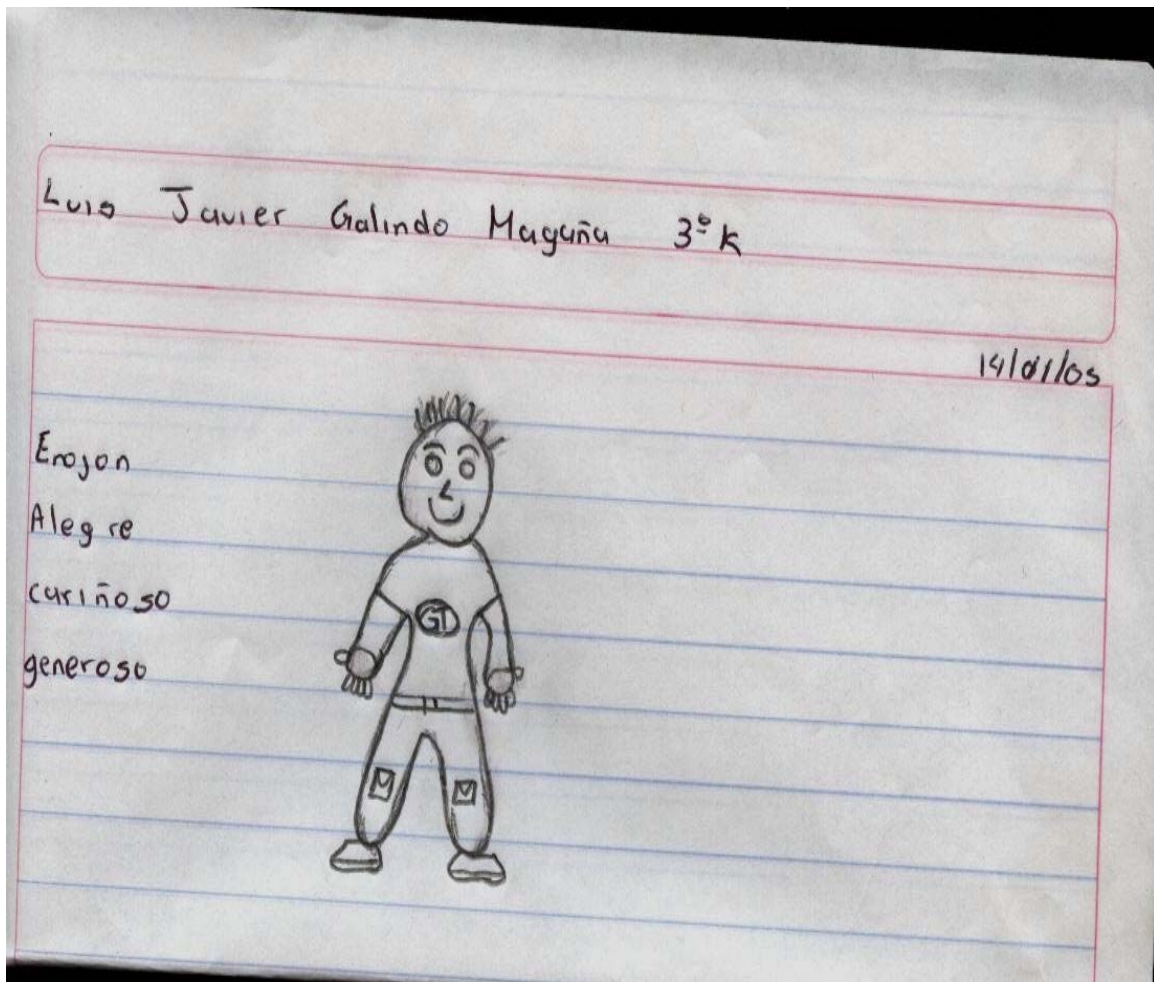 Luis Javier Galindo Magaña 3º K
14/01/05
Enojon
Alegre
cariñoso
GT
generoso
M M